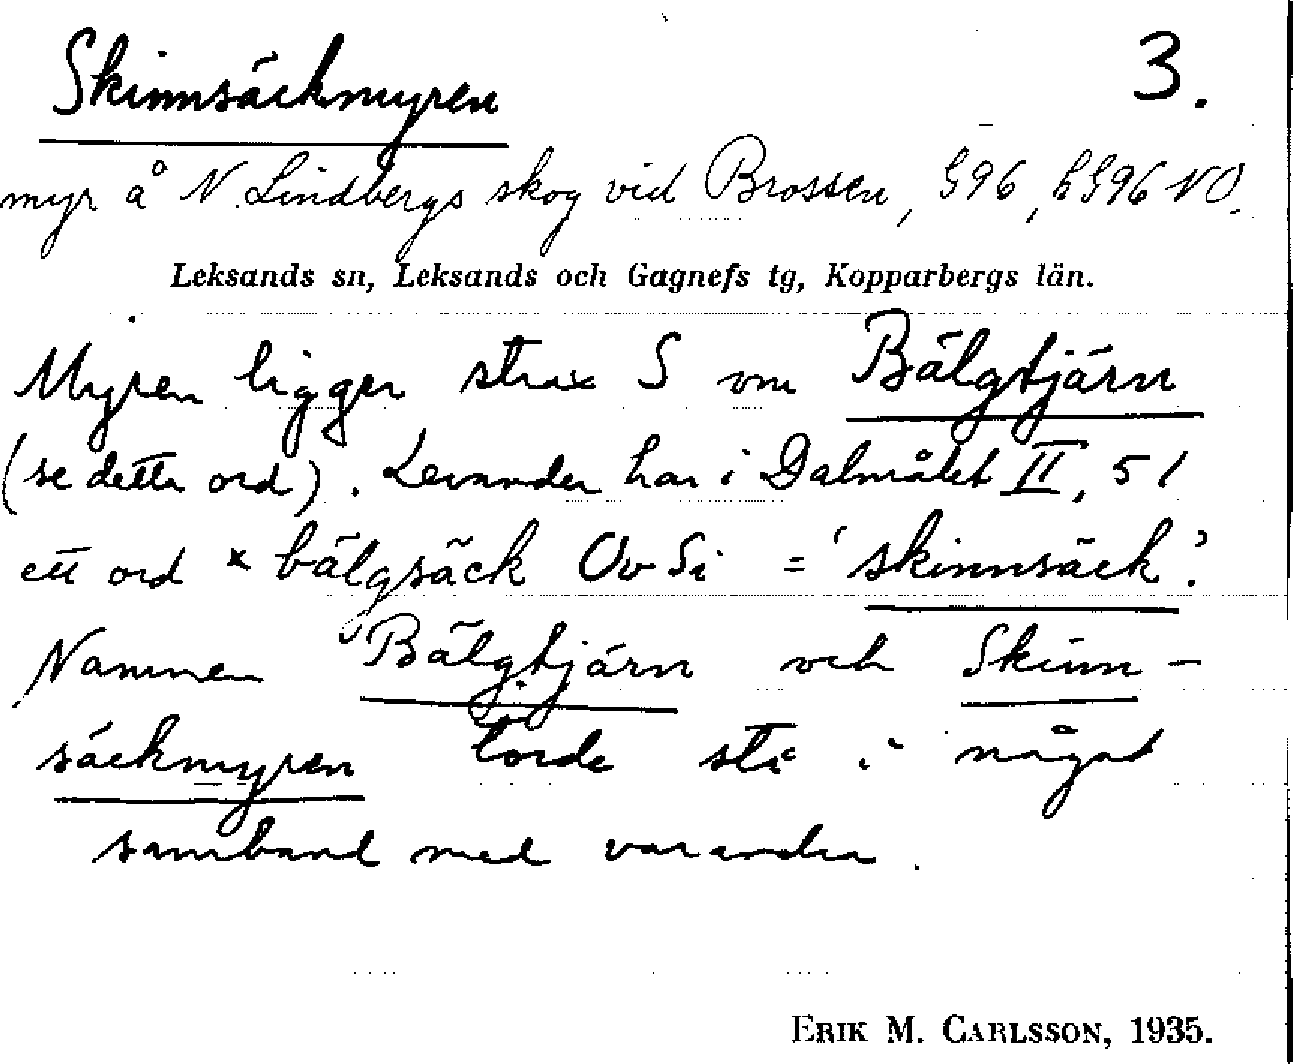 Skinnsäckmyren 3.
myr å N. Lindbergs skog vid Brossen, G96, bG96 NO.
Leksands sn, Leksands och Gagnefs tg, Kopparbergs län.
Myren ligger strax S om Bälgtjärn
(se detta ord). Levander har i Dalmålet II, 51
ett ord * bälgsäck Ov Si = 'skinnsäck'.
Namnen Bälgtjärn och Skinn-
säckmyren torde stå i något
samband med varandra.
ERIK M. CARLSSON, 1935.